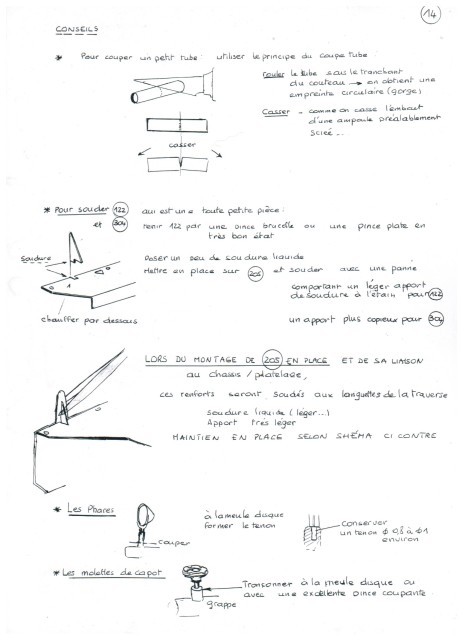 14
CONSEILS
* Pour couper un petit tube : utiliser le principe du coupe tube :
Rouler le tube sous le tranchant
du couteau → on obtient une
empreinte circulaire (gorge)
Casser - comme on casse l'embout
d'une ampoule préalablement
sciée...
casser
* Pour souder 122 qui est une toute petite pièce :
et 304 tenir 122 par une pince brucelle ou une pince plate en
très bon état
soudure
Poser un peu de soudure liquide
Mettre en place sur 205 et souder avec une panne
comportant un léger apport
de soudure à l'étain pour 122
un apport plus copieux pour 304
chauffer par dessous
LORS DU MONTAGE DE 205 EN PLACE ET DE SA LIAISON
au chassis / platelage,
ces renforts seront soudés aux languettes de la traverse
soudure liquide (léger...)
Apport très léger
MAINTIEN EN PLACE SELON SHÉMA CI CONTRE
* Les Phares
à la meule disque
former le tenon
couper
Conserver
un tenon φ 0,8 à φ1
environ
* Les molettes de capot
Tronsonner à la meule disque ou
avec une excellente pince coupante.
grappe